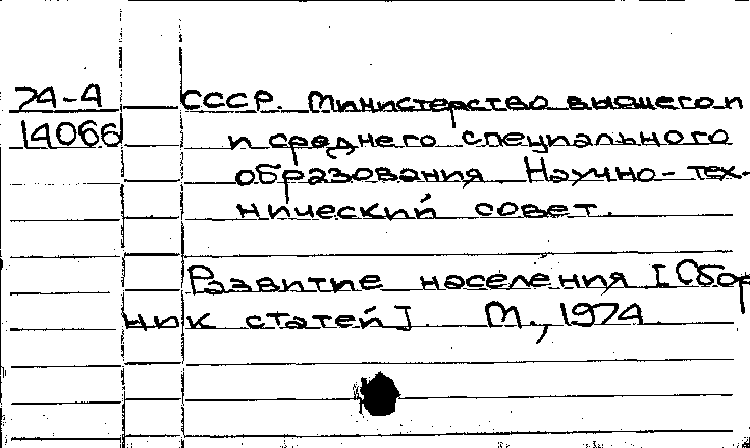 74-4 СССР. Министерство высшего и
14066 и среднего специального
образования. Научно-тех-
нический совет.
Развитие населения [Сбор
ник статей]. М., 1974.